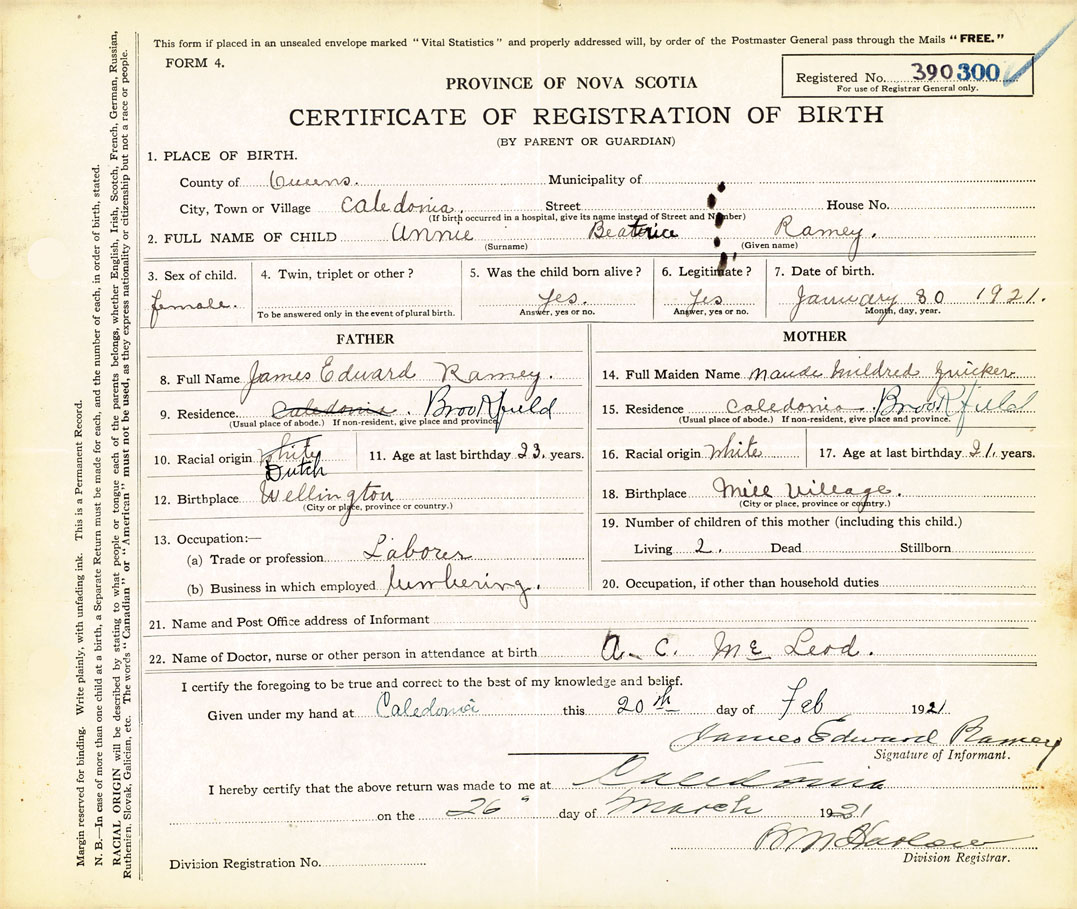 This form if placed in an unsealed envelope marked "Vital Statistics" and properly addressed will, by order of the Postmaster General pass through the Mails "FREE."
FORM 4.
Registered No. 390300
For use of Registrar General only.
PROVINCE OF NOVA SCOTIA
CERTIFICATE OF REGISTRATION OF BIRTH
(BY PARENT OR GUARDIAN)
1. PLACE OF BIRTH.
County of Queens. Municipality of
City, Town or Village Caledonia, Street House No.
(If birth occurred in a hospital, give its name instead of Street and Number)
2. FULL NAME OF CHILD Annie Beatrice Ramey.
(Surname) (Given name)
3. Sex of child. 4. Twin, triplet or other? 5. Was the child born alive? 6. Legitimate? 7. Date of birth.
female. Yes. Yes January 30 1921.
To be answered only in the event of plural birth. Answer, yes or no. Answer, yes or no. Month, day, year.
FATHER
8. Full Name James Edward Ramey.
9. Residence. Caledonia. Brookfield
(Usual place of abode.) If non-resident, give place and province.
10. Racial origin White 11. Age at last birthday 23. years.
Dutch
12. Birthplace Wellington
(City or place, province or country.)
13. Occupation:—
(a) Trade or profession Laborer
(b) Business in which employed lumbering.
MOTHER
14. Full Maiden Name Maude Mildred Zwicker
15. Residence Caledonia Brookfield
(Usual place of abode.) If non-resident, give place and province.
16. Racial origin White 17. Age at last birthday 21. years.
18. Birthplace Mill Village.
(City or place, province or country.)
19. Number of children of this mother (including this child.)
Living 2. Dead Stillborn
20. Occupation, if other than household duties
21. Name and Post Office address of Informant
22. Name of Doctor, nurse or other person in attendance at birth A. C. McLeod.
I certify the foregoing to be true and correct to the best of my knowledge and belief.
Given under my hand at Caledonia this 20th day of Feb 1921
James Edward Ramey
Signature of Informant.
I hereby certify that the above return was made to me at Caledonia
on the 26" day of March 1921
Harlow
Division Registrar.
Division Registration No.
Margin reserved for binding. Write plainly, with unfading ink. This is a Permanent Record.
N. B.—In case of more than one child at a birth, a Separate Return must be made for each, and the number of each, in order of birth, stated.
RACIAL ORIGIN will be described by stating to what people or tongue each of the parents belongs, whether English, Irish, Scotch, French, German, Russian,
Ruthenian, Slovak, Galician, etc. The words "Canadian" or "American" must not be used, as they express nationality or citizenship but not a race or people.